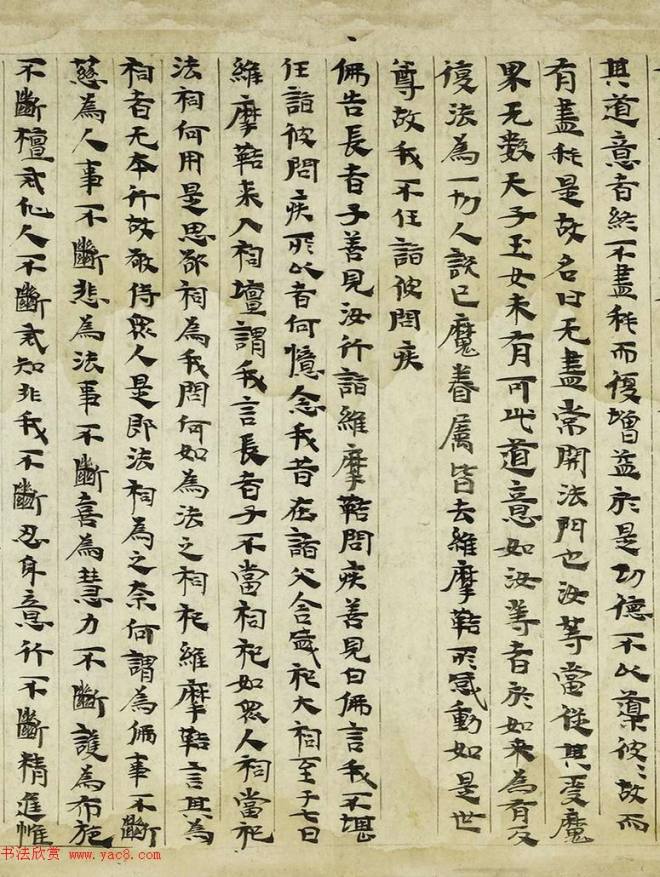 其道意者終不盡秏而復增益於是功德不以導彼彼故而
有盡秏是故名曰无盡常開法門也汝等當從其受魔
果无數天子玉女未有可此道意如汝等者於如来為有反
復法為一切人說已魔眷属皆去維摩鞊所感動如是世
尊故我不任詣彼問疾
佛告長者子善見汝行詣維摩鞊問疾善見白佛言我不堪
任詣彼問疾所以者何憶念我昔在諸父舍盛祀大祠至于七日
維摩鞊来入祠壇謂我言長者子不當祠祀如衆人祠當祀
法祠何用是思欲祠為我問何如為法之祠祀維摩鞊言其為
祠者无本行故敬侍衆人是即法祠為之奈何謂為佛事不斷
慈為人事不斷悲為法事不斷喜為慧力不斷護為布施
不斷檀戒化人不斷戒知非我不斷忍身意行不斷精進惟
书法欣赏 www.yac8.com